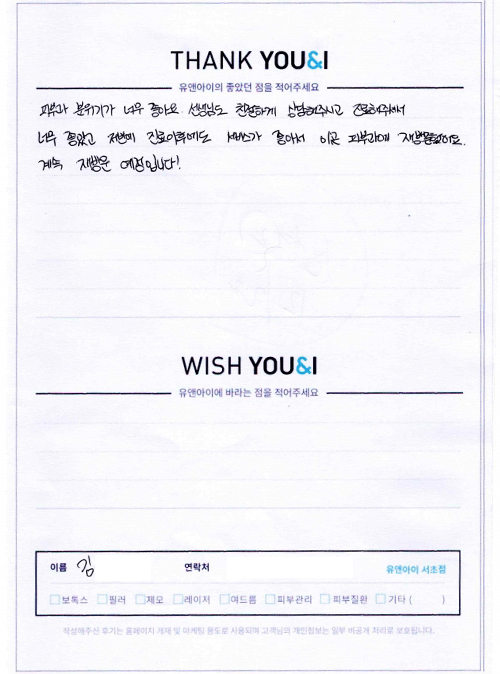 THANK YOU&I
유앤아이의 좋았던 점을 적어주세요
피부과 분위기가 너무 좋아요. 선생님도 친절하게 상담해주시고 진료해주셔서
너무 좋았고 저번에 진료이후에도 서비스가 좋아서 이곳 피부과에 재방문했어요.
계속 재방문 예정입니다!
WISH YOU&I
유앤아이에 바라는 점을 적어주세요
이름 김 연락처 유앤아이 서초점
보톡스 필러 제모 레이저 여드름 피부관리 피부질환 기타 ( )
작성해주신 후기는 홈페이지 게재 및 마케팅 용도로 사용되며 고객님의 개인정보는 일부 비공개 처리로 보호됩니다.